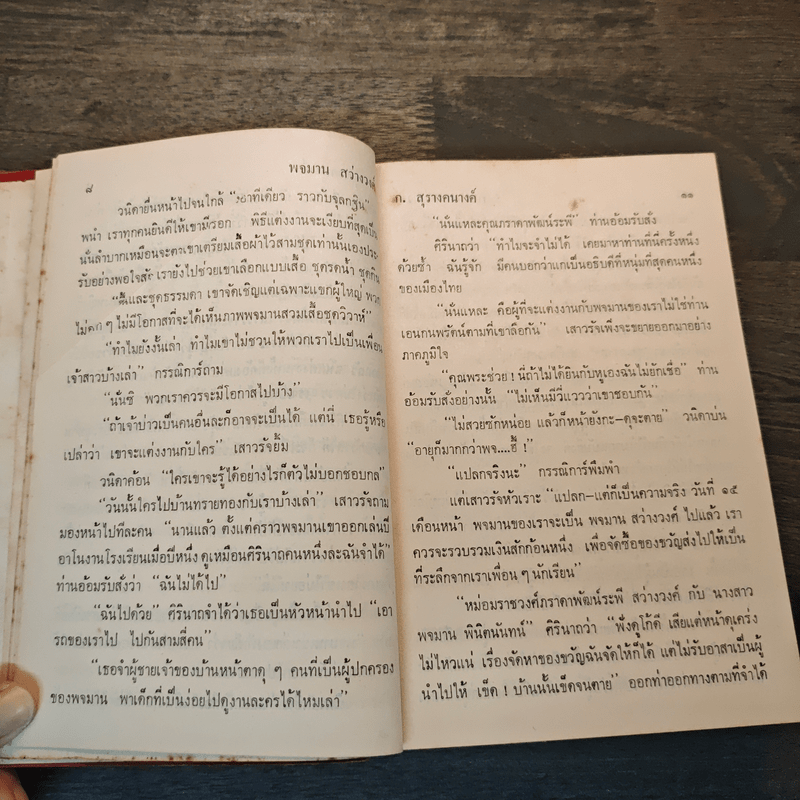 ๘
พจมาน สว่างวงศ์
วนิดายื่นหน้าไปจนใกล้ ทีเดียว ราวกับจุลกฐิน”
พนำ เราทุกคนยินดีให้เขามีรอก พิธีแต่งงานจะเงียบที่สุดเป็น
นั่นลำบากเหมือนจะ เขาเตรียมเสื้อผ้าไว้สามชุดเท่านั้นเองประ
รับอย่างพอใจ เรายังไปช่วยเขาเลือกแบบเสื้อ ชุดรดน้ำ ชุดกิน
และชุดธรรมดา เขาจัดเชิญแต่เฉพาะแขกผู้ใหญ่ พวก
ๆ ไม่มีโอกาสที่จะได้เห็นภาพพจมานสวมเสื้อชุดวิวาห์”
“ทำไมยังงั้นเล่า ทำไมเขาไม่ชวนให้พวกเราไปเป็นเพื่อน
เจ้าสาวบ้างเล่า” กรรณิการ์ถาม
“นั่นซิ พวกเราควรจะมีโอกาสไปบ้าง”
“ถ้าเจ้าบ่าวเป็นคนอื่นละก็อาจจะเป็นได้ แต่นี่ เธอรู้หรือ
เปล่าว่า เขาจะแต่งงานกับใคร” เสาวรัจยิ้ม
วนิดาค้อน “ใครเขาจะรู้ได้อย่างไรก็ตัวไม่บอกชอบกล”
“วันนั้นใครไปบ้านทรายทองกับเราบ้างเล่า” เสาวรัจถาม
มองหน้าไปทีละคน “นานแล้ว ตั้งแต่คราวพจมานเขาออกเล่นเปี
อาโนงานโรงเรียนเมื่อปีหนึ่ง ดูเหมือนศิรินาถคนหนึ่งละฉันจำได้”
ท่านอ้อมรับสั่งว่า “ฉันไม่ได้ไป”
“ฉันไปด้วย” ศิรินาถจำได้ว่าเธอเป็นหัวหน้านำไป “เอา
รถของเราไป ไปกันสามสี่คน”
“เธอจำผู้ชายเจ้าของบ้านหน้าตาดุ ๆ คนที่เป็นผู้ปกครอง
ของพจมาน พาเด็กที่เป็นง่อยไปดูงานละครได้ไหมเล่า”
ก. สุรางคนางค์
๑๑
“นั่นแหละคุณภราดาพัฒน์ระพี” ท่านอ้อมรับสั่ง
ศิรินาถว่า “ทำไมจะจำไม่ได้ เคยมาหาท่านที่นี่ครั้งหนึ่ง
ด้วยซ้ำ ฉันรู้จัก มีคนบอกว่าแกเป็นอธิบดีที่หนุ่มที่สุดคนหนึ่ง
ของเมืองไทย
“นั่นแหละ คือผู้ที่จะแต่งงานกับพจมานของเราไม่ใช่ท่าน
เอนกนพรัตน์ตามที่เขาลือกัน” เสาวรัจเพิ่งจะขยายออกมาอย่าง
ภาคภูมิใจ
“คุณพระช่วย ! นี่ถ้าไม่ได้ยินกับหูเองฉันไม่ยักเชื่อ” ท่าน
อ้อมรับสั่งอย่างนั้น “ไม่เห็นมีวี่แววว่าเขาชอบกัน”
“ไม่สวยซักหน่อย แล้วก็หน้ายังกะ–ดุจะตาย” วนิดาบ่น
“อายุก็มากกว่าพจ....ฮี้ !”
“แปลกจริงนะ” กรรณิการ์พึมพำ
แต่เสาวรัจหัวเราะ “แปลก–แต่ก็เป็นความจริง วันที่ ๑๕
เดือนหน้า พจมานของเราจะเป็น พจมาน สว่างวงศ์ ไปแล้ว เรา
ควรจะรวบรวมเงินสักก้อนหนึ่ง เพื่อจัดซื้อของขวัญส่งไปให้เป็น
ที่ระลึกจากเราเพื่อน ๆ นักเรียน”
“หม่อมราชวงศ์ภราดาพัฒน์ระพี สว่างวงศ์ กับ นางสาว
พจมาน พินิตนันทน์” ศิรินาถว่า “ฟังดูโก้ดี เสียแต่หน้าดุเคร่ง
ไม่ไหวแน่ เรื่องจัดหาของขวัญฉันจัดให้ก็ได้ แต่ไม่รับอาสาเป็นผู้
นำไปให้ เข็ด ! บ้านนั้นเข็ดจนตาย” ออกท่าออกทางตามที่จำได้